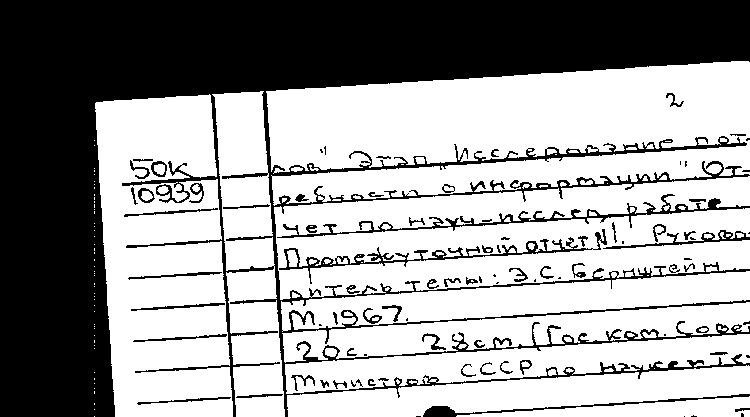 2
50К лов" Этап „Исследование пот-
10939 ребности о информации". От-
чет по науч-исслед. работе.
Промежуточный отчет №1. Руково-
дитель темы: Э.С. Бернштейн.
М., 1967.
20с. 28см. (Гос. ком. Совет
Министров СССР по науке и те-